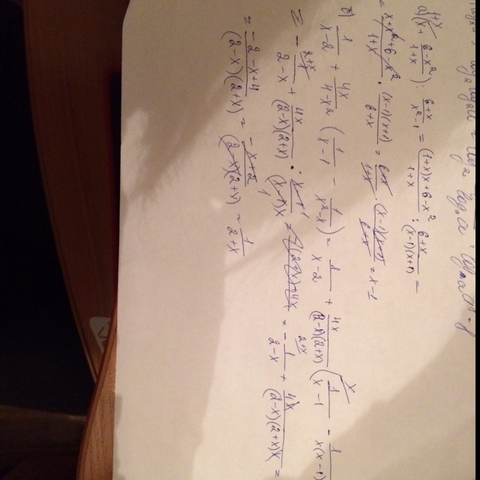 a) (x + (6-x²)/(1+x)) : (6+x)/(x²-1) = ((1+x)x+6-x²)/(1+x) : (6+x)/((x-1)(x+1)) =
= (x+x²+6-x²)/(1+x) · ((x-1)(x+1))/(6+x) = (6+x)/(1+x) · ((x-1)(x+1))/(6+x) = x-1
б) 1/(x-2) + 4x/(4-x²) (1/(x-1) - 1/(x²-x)) = 1/(x-2) + 4x/((2-x)(2+x)) (1/(x-1) - 1/(x(x-1))
= - 1/(2-x) + 4x/((2-x)(2+x)) · (x-1)/((x-1)x) = = - 1/(2-x) + 4x/((2-x)(2+x)x) =
= (-2-x+4)/((2-x)(2+x)) = (-x+2)/((2-x)(2+x)) = 1/(2+x)